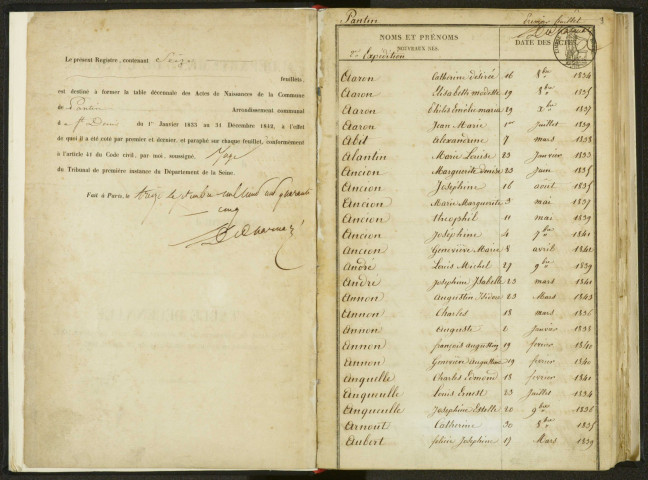 Le présent Registre, contenant Seize
feuillets,
est destiné à former la table décennale des Actes de Naissances de la Commune
de Pantin Arrondissement communal
de St Denis du 1er Janvier 1833 au 31 Décembre 1842, à l'effet
de quoi il a été coté par premier et dernier, et paraphé sur chaque feuillet, conformément
à l'article 41 du Code civil, par moi, soussigné, Juge
du Tribunal de première instance du Département de la Seine.
Fait à Paris, le treize septembre mil huit cent quarante
cinq
Pantin Premier feuillet
NOMS ET PRÉNOMS
NOUVEAUX NÉS. DATE DES ACTES
2e Expédition
Aaron Catherine désirée 16 8bre 1834
Aaron Elisabeth modeste 19 8bre 1835
Aaron Emélie maria 29 Xbre 1837
Aaron Jean Marie 1er Juillet 1839
Abit Alexandrine 7 mars 1838
Alantin Marie Louise 23 Janvier 1833
Ancion Marguerite denise 23 Juin 1835
Ancion Joséphine 16 aout 1835
Ancion Marie Marguerite 3 mai 1837
Ancion théophil 11 mai 1839
Ancion Joséphine 4 7bre 1841
Ancion Geneviève Marie 8 avril 1842
André Louis Michel 27 9bre 1839
André Joséphine Isabelle 23 mars 1841
Annon Augustin Isidore 23 Mars 1843
Annon Charles 18 mars 1836
Annon Auguste 2 Janvier 1838
Annon françois Augustin 19 février 1840
Annon Geneviève Augustine 19 février 1840
Anqueulle Charles Edmond 18 février 1841
Anqueulle Louis Ernest 23 Juillet 1834
Anqueulle Joséphine Estelle 20 9bre 1836
Arnout Catherine 30 8bre 1835
Aubert Joséphine 17 Mars 1839